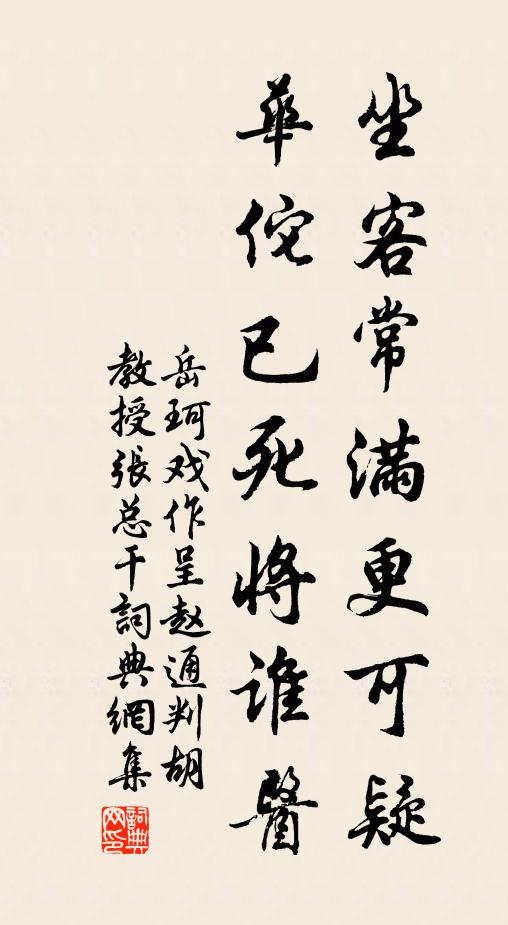 坐客常滿更可疑
華佗已死將誰醫
岳珂戏作呈赵通判胡
教授張总干詞典網集
詞典
网印